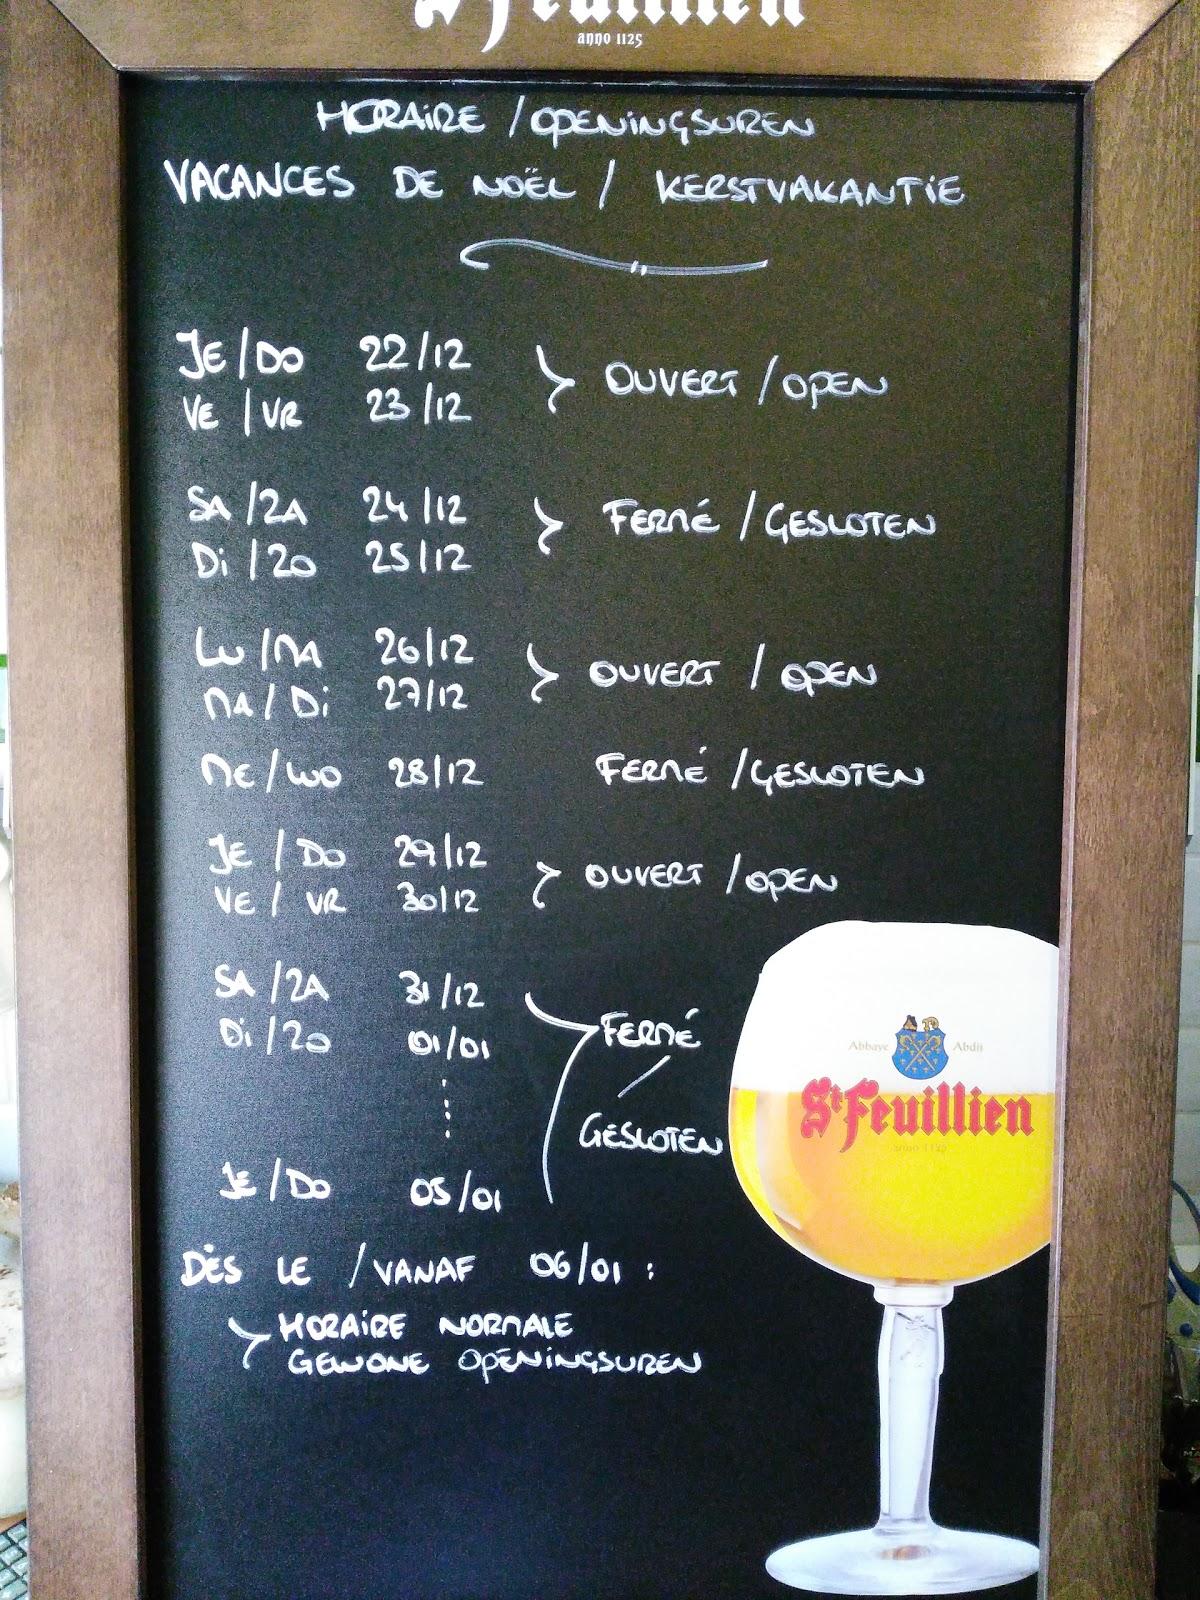 St Feuillien
anno 1125
HORAIRE / OPENINGSUREN
VACANCES DE NOËL / KERSTVAKANTIE
JE / DO 22/12
VE / VR 23/12
OUVERT / OPEN
SA / ZA 24/12
DI / ZO 25/12
FERMÉ / GESLOTEN
LU / MA 26/12
MA / DI 27/12
OUVERT / OPEN
ME / WO 28/12 FERMÉ / GESLOTEN
JE / DO 29/12
VE / VR 30/12
OUVERT / OPEN
SA / ZA 31/12
DI / ZO 01/01
JE / DO 05/01
FERMÉ
/
GESLOTEN
DÈS LE / VANAF 06/01 :
HORAIRE NORMALE
GEWONE OPENINGSUREN
Abbaye Abdij
St Feuillien
anno 1125